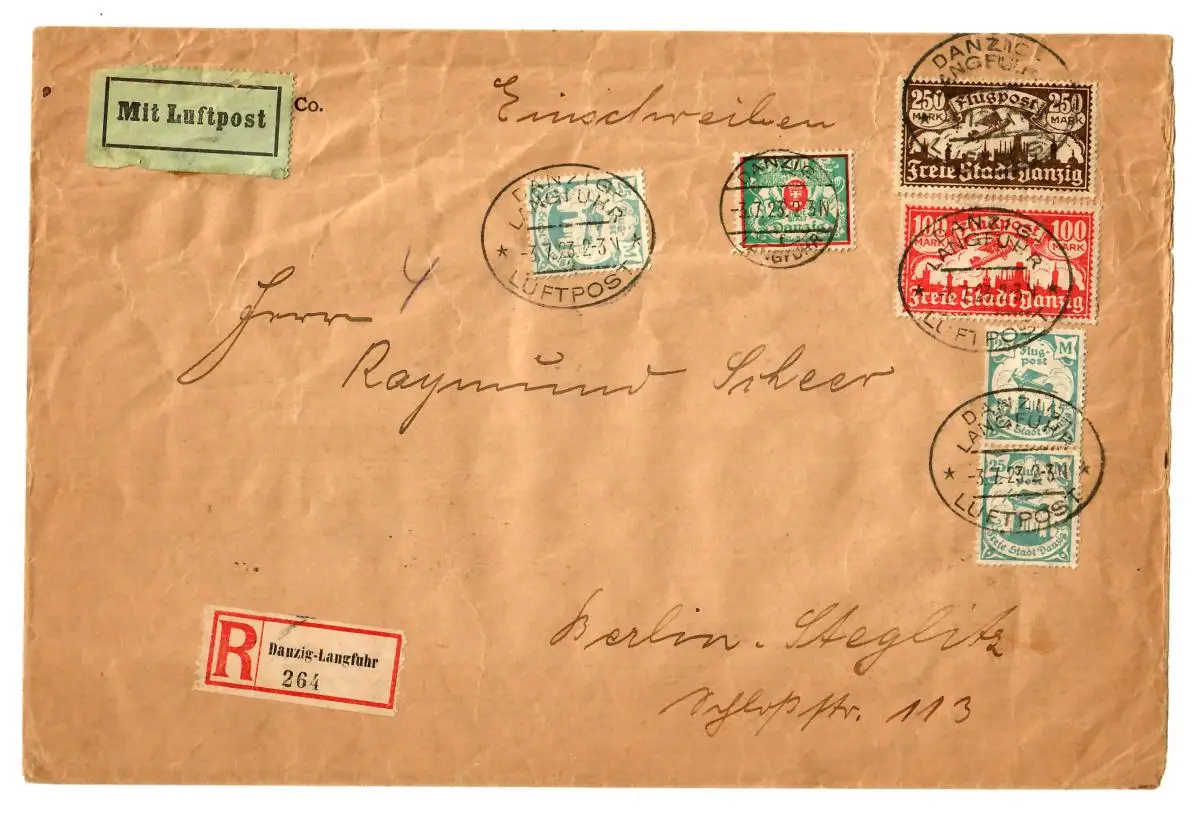 Mit Luftpost
Co.
Einschreiben
DANZIG
LANGFUHR
LUFTPOST
250 Flugpost 250
MARK MARK
Freie Stadt Danzig
DANZIG
LANGFUHR
-3.7.23.2-3N
LUFTPOST
M
DANZIG
-3.7.23.2-3N
LANGFUHR
Danzig
100 100
MARK MARK
Freie Stadt Danzig
DANZIG
LANGFUHR
LUFTPOST
4
Herrn
Raymund Scheer
25 M
Flug-
post
Freie Stadt
DANZIG
LANGFUHR
-3.7.23.2-3N
LUFTPOST
25
Flug-
post
Freie Stadt Danzig
Berlin-Steglitz
Schloßstr. 113
R
Danzig-Langfuhr
264